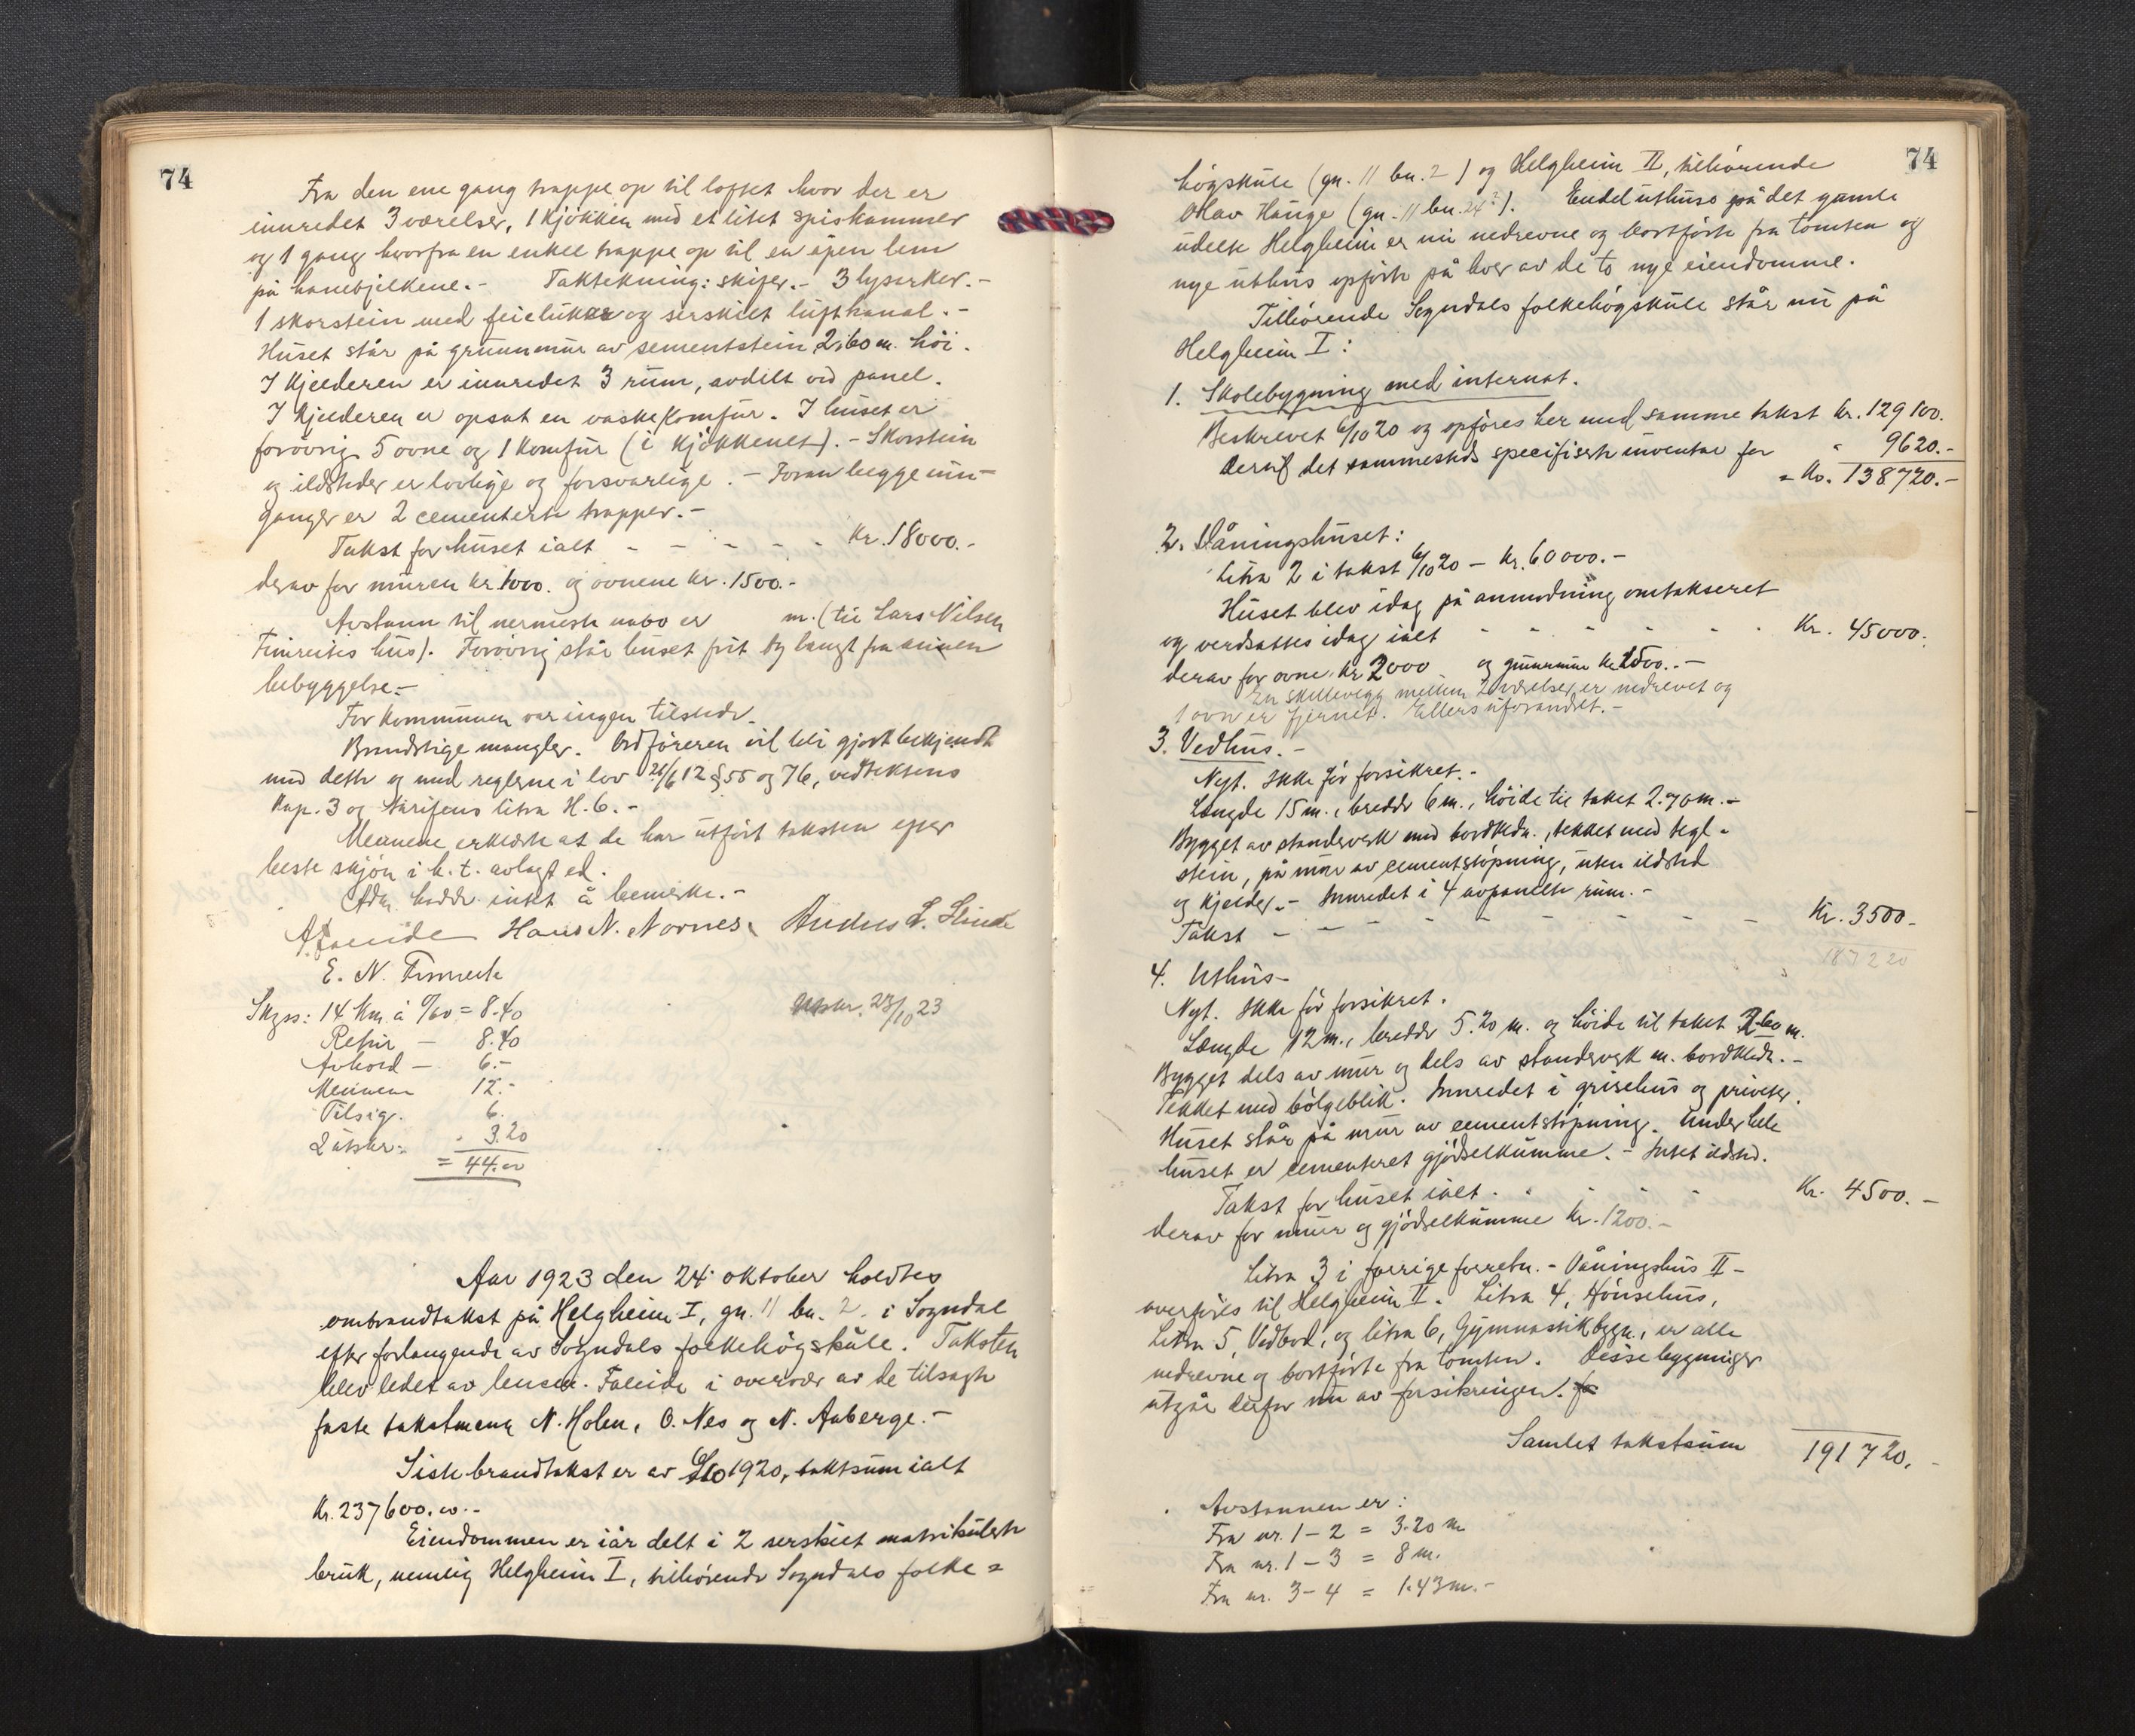 74
Fra den ene gang trappe op til loftet hvor der er
innredet 3 værelser, 1 kjøkken med et litet spiskammer
og 1 gang hvorfra en enkel trappe op til en åpen lem
på hanebjelkene.- Taktekning: skifer.- 3 lysarker.-
1 skorstein med feieluker og serskilt luftkanal.-
Huset står på grunnmur av sementstein 2,60 m. høi.
I kjelderen er innredet 3 rum, avdelt ved panel.
I kjelderen er opsat en vaskekomfur. I huset er
forøvrig 5 ovne og 1 komfur (i kjøkkenet).- Skorstein
og ildsteder er lovlige og forsvarlige.- Foran begge inn-
ganger er 2 cementerte trapper.-
Takst for huset ialt - - - - - Kr. 18000.-
derav for muren kr. 1000. og ovnene kr. 1500.-
Avstann til nermeste nabo er m. (til Lars Nilsen
Fimreites hus). Forøvrig står huset frit og langt fra annen
bebyggelse.-
For kommunen var ingen tilstede.
Brandstige mangler. Ordføreren vil bli gjort bekjendt
med dette og med reglerne i lov 21/6 12 § 55 og 76, vedtektens
Kap. 3 og tarifens litra H. 6.-
Mennene erklærte at de har utført taksten efter
beste skjøn i h. t. avlagt ed.
Adm. hadde intet å bemerke.-
A Faleide Hans N. Nornes. Anders L. Slinde
E. N. Fimreite
Skyss: 14 Km. à 0/60 = 8.40
Retur - 8.40
Avhold - 6.-
Mennene 12.-
Tilsig. 6.
2 utskr. - 3.20
= 44.00
Utskr. 23/10 23
Aar 1923 den 24. oktober holdtes
ombrandtakst på Helgheim I, gn. 11 bn. 2. i Sogndal
efter forlangende av Sogndals folkehøgskule. Taksten
blev ledet av lensm. Faleide i overvær av de tilsagte
faste takstmenn N. Holen, O. Nes og N. Aaberge.-
Siste brandtakst er av 6/10 1920, takstsum ialt
Kr. 237600.00.-
Eiendommen er iår delt i 2 serskilt matrikulerte
bruk, nemlig Helgheim I, tilhørende Sogndals folke=
74
høgskule (gn. 11 bn. 2) og Helgheim II, tilhørende
Olav Hauge (gn. 11 bn. 24?). Endel uthuse på det gamle
udelte Helgheim er nu nedrevne og bortførte fra tomten og
nye uthus opførte på hver av de to nye eiendomme.
Tilhørende Sogndals folkehøgskule står nu på
Helgheim I:
1. Skolebygning med internat.
Beskrevet 6/10 20 og opføres her med samme takst Kr. 129100.
dertil det sammesteds specifiserte inventar for " 9620.-
= Kr. 138720.-
2. Våningshuset:
Litra 2 i takst 6/10 20 - Kr. 60000.-
Huset blev idag på anmodning omtakseret
og verdsattes idag ialt - - - - - - Kr. 45000.
derav for ovne kr 2000 og grunnmur kr 1500..-
En skillevegg mellem 2 værelser er nedrevet og
1 ovn er fjernet. Ellers uforandret.-
3. Vedhus.-
Nyt. Ikke før forsikret.-
Længde 15 m., bredde 6 m., høide til taket 2.70 m.-
Bygget av standverk med bordkledn., tekket med tegl-
stein, på mur av cementstøpning, uten ildsted
og kjelder.- Innredet i 4 avpanelte rum.-
Takst - - - - - - - - Kr. 3500-
187220
4. Uthus-
Nyt. Ikke før forsikret.
Længde 12 m., bredde 5.20 m. og høide til taket 2.60 m.
Bygget dels av mur og dels av standverk m. bordkledn.-
Tekket med bølgeblik. Innredet i grisehus og priveter.
Huset står på mur av cementstøpning. Under hele
huset er cementeret gjødselkumme.- Intet ildsted.
Takst for huset ialt - - - - Kr. 4500.-
derav for mur og gjødselkumme kr. 1200.-
Litra 3 i forrige forretn.- Våningshus II-
overføres til Helgheim II. Litra 4, Hønsehus,
Litra 5, Vedbod, og litra 6, Gymnastikbygn., er alle
nedrevne og bortførte fra tomten. Disse bygninger
utgår derfor nu av forsikringen.
Samlet takstsum 191720.-
Avstannen er:
Fra nr. 1-2 = 3.20 m
Fra nr. 1-3 = 8 m.
Fra nr. 3-4 = 1.43 m.-